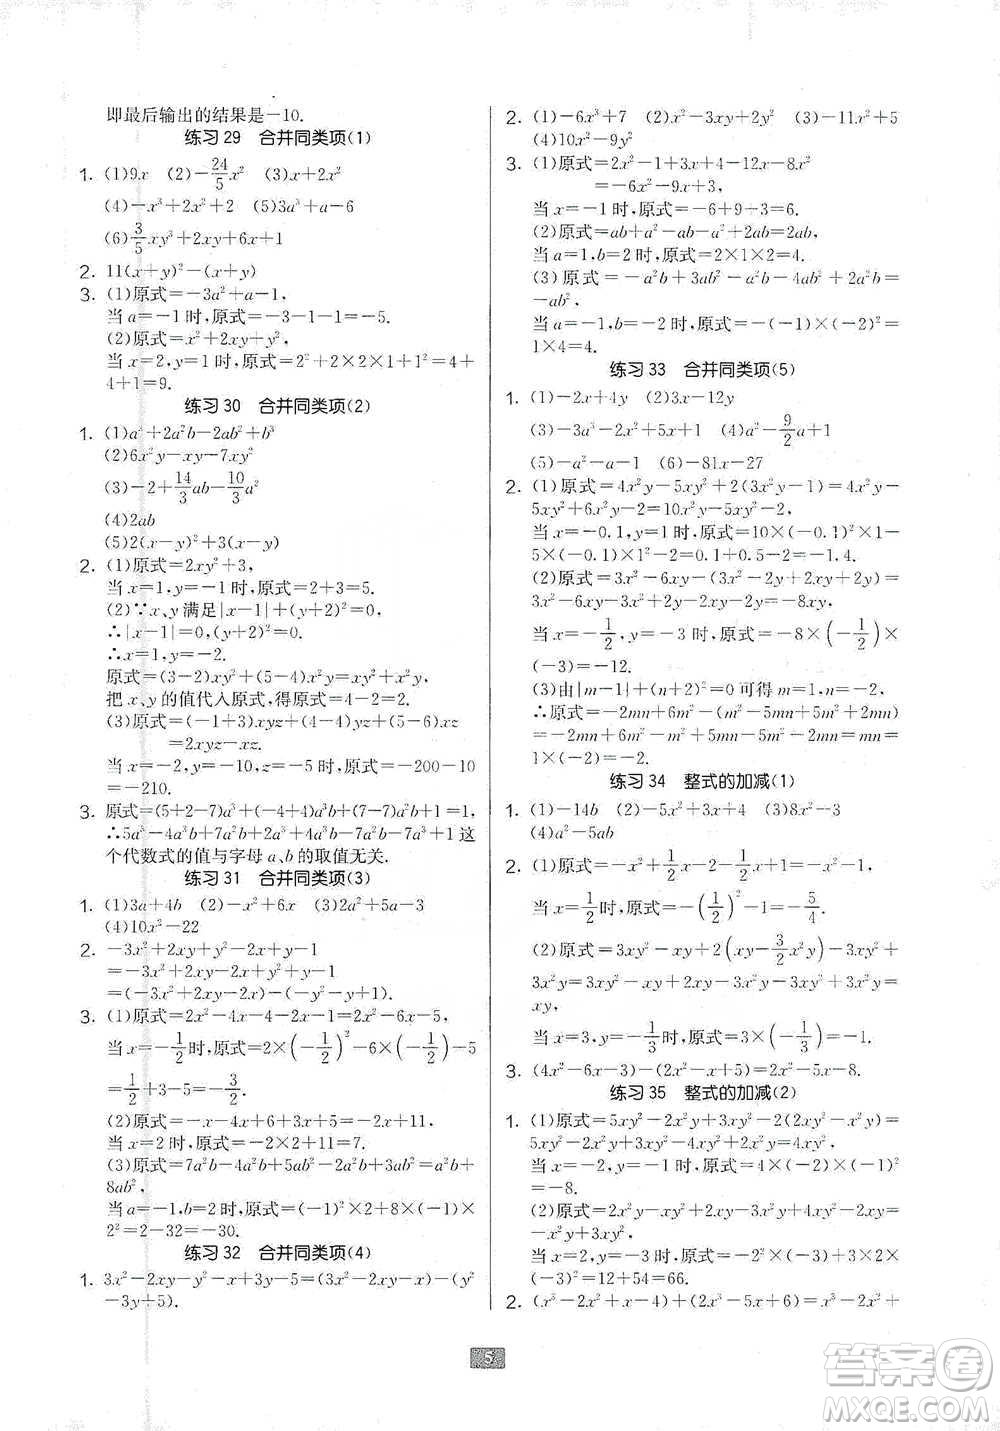 即最后输出的结果是−10.
练习 29 合并同类项(1)
1. (1)9x (2)−24/5x² (3)x+2x²
(4)−x³+2x²+2 (5)3a³+a−6
(6)3/5xy³+2xy+6x+1
2. 11(x+y)²−(x+y)
3. (1)原式=−3a²+a−1,
当a=−1时,原式=−3−1−1=−5.
(2)原式=x²+2xy+y²,
当x=2,y=1时,原式=2²+2×2×1+1²=4+
4+1=9.
练习 30 合并同类项(2)
1. (1)a³+2a²b−2ab²+b³
(2)6x²y−xy−7xy²
(3)−2+14/3ab−10/3a²
(4)2ab
(5)2(x−y)²+3(x−y)
2. (1)原式=2xy²+3,
当x=1,y=−1时,原式=2+3=5.
(2)∵x、y满足|x−1|+(y+2)²=0,
∴|x−1|=0,(y+2)²=0.
∴x=1,y=−2.
原式=(3−2)xy²+(5−4)x²y=xy²+x²y.
把x、y的值代入原式,得原式=4−2=2.
(3)原式=(−1+3)xyz+(4−4)yz+(5−6)xz
=2xyz−xz.
当x=−2,y=−10,z=−5时,原式=−200−10=
−210.
3. 原式=(5+2−7)a³+(−4+4)a³b+(7−7)a²b+1=1,
∴5a³−4a³b+7a²b+2a³+4a³b−7a³−7a²b+1这
个代数式的值与字母a、b的取值无关.
练习 31 合并同类项(3)
1. (1)3a+4b (2)−x²+6x (3)2a²+5a−3
(4)10x²−22
2. −3x²+2xy+y²−2x+y−1
=−3x²+2xy−2x+y²+y−1
=(−3x²+2xy−2x)−(−y²−y+1).
3. (1)原式=2x²−4x−4−2x−1=2x²−6x−5,
当x=−1/2时,原式=2×(−1/2)²−6×(−1/2)−5
=1/2+3−5=−3/2.
(2)原式=−x²−4x+2x+11=−x²−2x+11,
当x=2时,原式=−2²−2×2+11=3.
(3)原式=7a²b−4a²b+5ab²−2a²b+3ab²=a²b+
8ab²,
当a=−1,b=2时,原式=(−1)²×2+8×(−1)×
2²=2−32=−30.
练习 32 合并同类项(4)
1. 3x²−2xy−y²−x+3y−5=(3x²−2xy−x)−(y²
−3y+5).
2. (1)−6x³+7 (2)x²−3xy+2y² (3)−11x²+5
(4)10x²−9y²
3. (1)原式=2x²−1+3x−12x−8x²+4
=−6x²−9x+3,
当x=−1时,原式=−6+9+3=6.
(2)原式=ab+a²−ab−a²+2ab=2ab,
当a=1,b=2时,原式=2×1×2=4.
(3)原式=−a²b+3ab²−a²b−4ab²+2a²b=
−ab²,
当a=−1,b=−2时,原式=−(−1)×(−2)²=
1×4=4.
练习 33 合并同类项(5)
1. (1)−2x+4y (2)3x−12y
(3)−3a³−2x²+5x+1 (4)a²−9/2a+1
(5)−a²−a−1 (6)−81x−27
2. (1)原式=4x²y−5xy²+2(3x²y−1)=4x²y−
5xy²+6x²y−2=10x²y−5xy²−2.
当x=−0.1,y=1时,原式=10×(−0.1)²×1−
5×(−0.1)×1²−2=0.1+0.5−2=−1.4.
(2)原式=3x²−6xy−(3x²−2y+2xy+2y)=
3x²−6xy−3x²+2y−2xy−2y=−8xy,
当x=−1/2,y=−3时,原式=−8×(−1/2)×
(−3)=−12.
(3)由|m−1|+(n+2)²=0可得m=1,n=−2,
∴原式=−2mn+6m²−(m²−5mn+5m²+2mn)
=−2mn+6m²−m²+5mn−5m²−2mn=mn=
1×(−2)=−2.
练习 34 整式的加减(1)
1. (1)−14b (2)−5x²+3x+4 (3)8x²−3
(4)a²−5ab
2. (1)原式=−x²+1/2x−2−1/2x+1=−x²−1,
当x=1/2时,原式=−(1/2)²−1=−5/4.
(2)原式=3x²y−xy+2(xy−3/2x²y)=
3x²y−xy+2xy−3x²y=xy,
当x=3,y=−1/3时,原式=3×(−1/3)=−1.
3. (4x²−6x−3)−(2x²−x+5)=2x²−5x−8.
练习 35 整式的加减(2)
1. (1)原式=5xy²−2x²y+3xy²−2(2xy²−x²y)=
5xy²−2x²y+3xy²−4xy²+2x²y=4xy²,
当x=−2,y=−1时,原式=4×(−2)×(−1)²
=−8.
2. (x³−2x²+x−4)+(2x³−5x+6)=x³−2x²+
5
答案卷
WWW.MXQE.COM